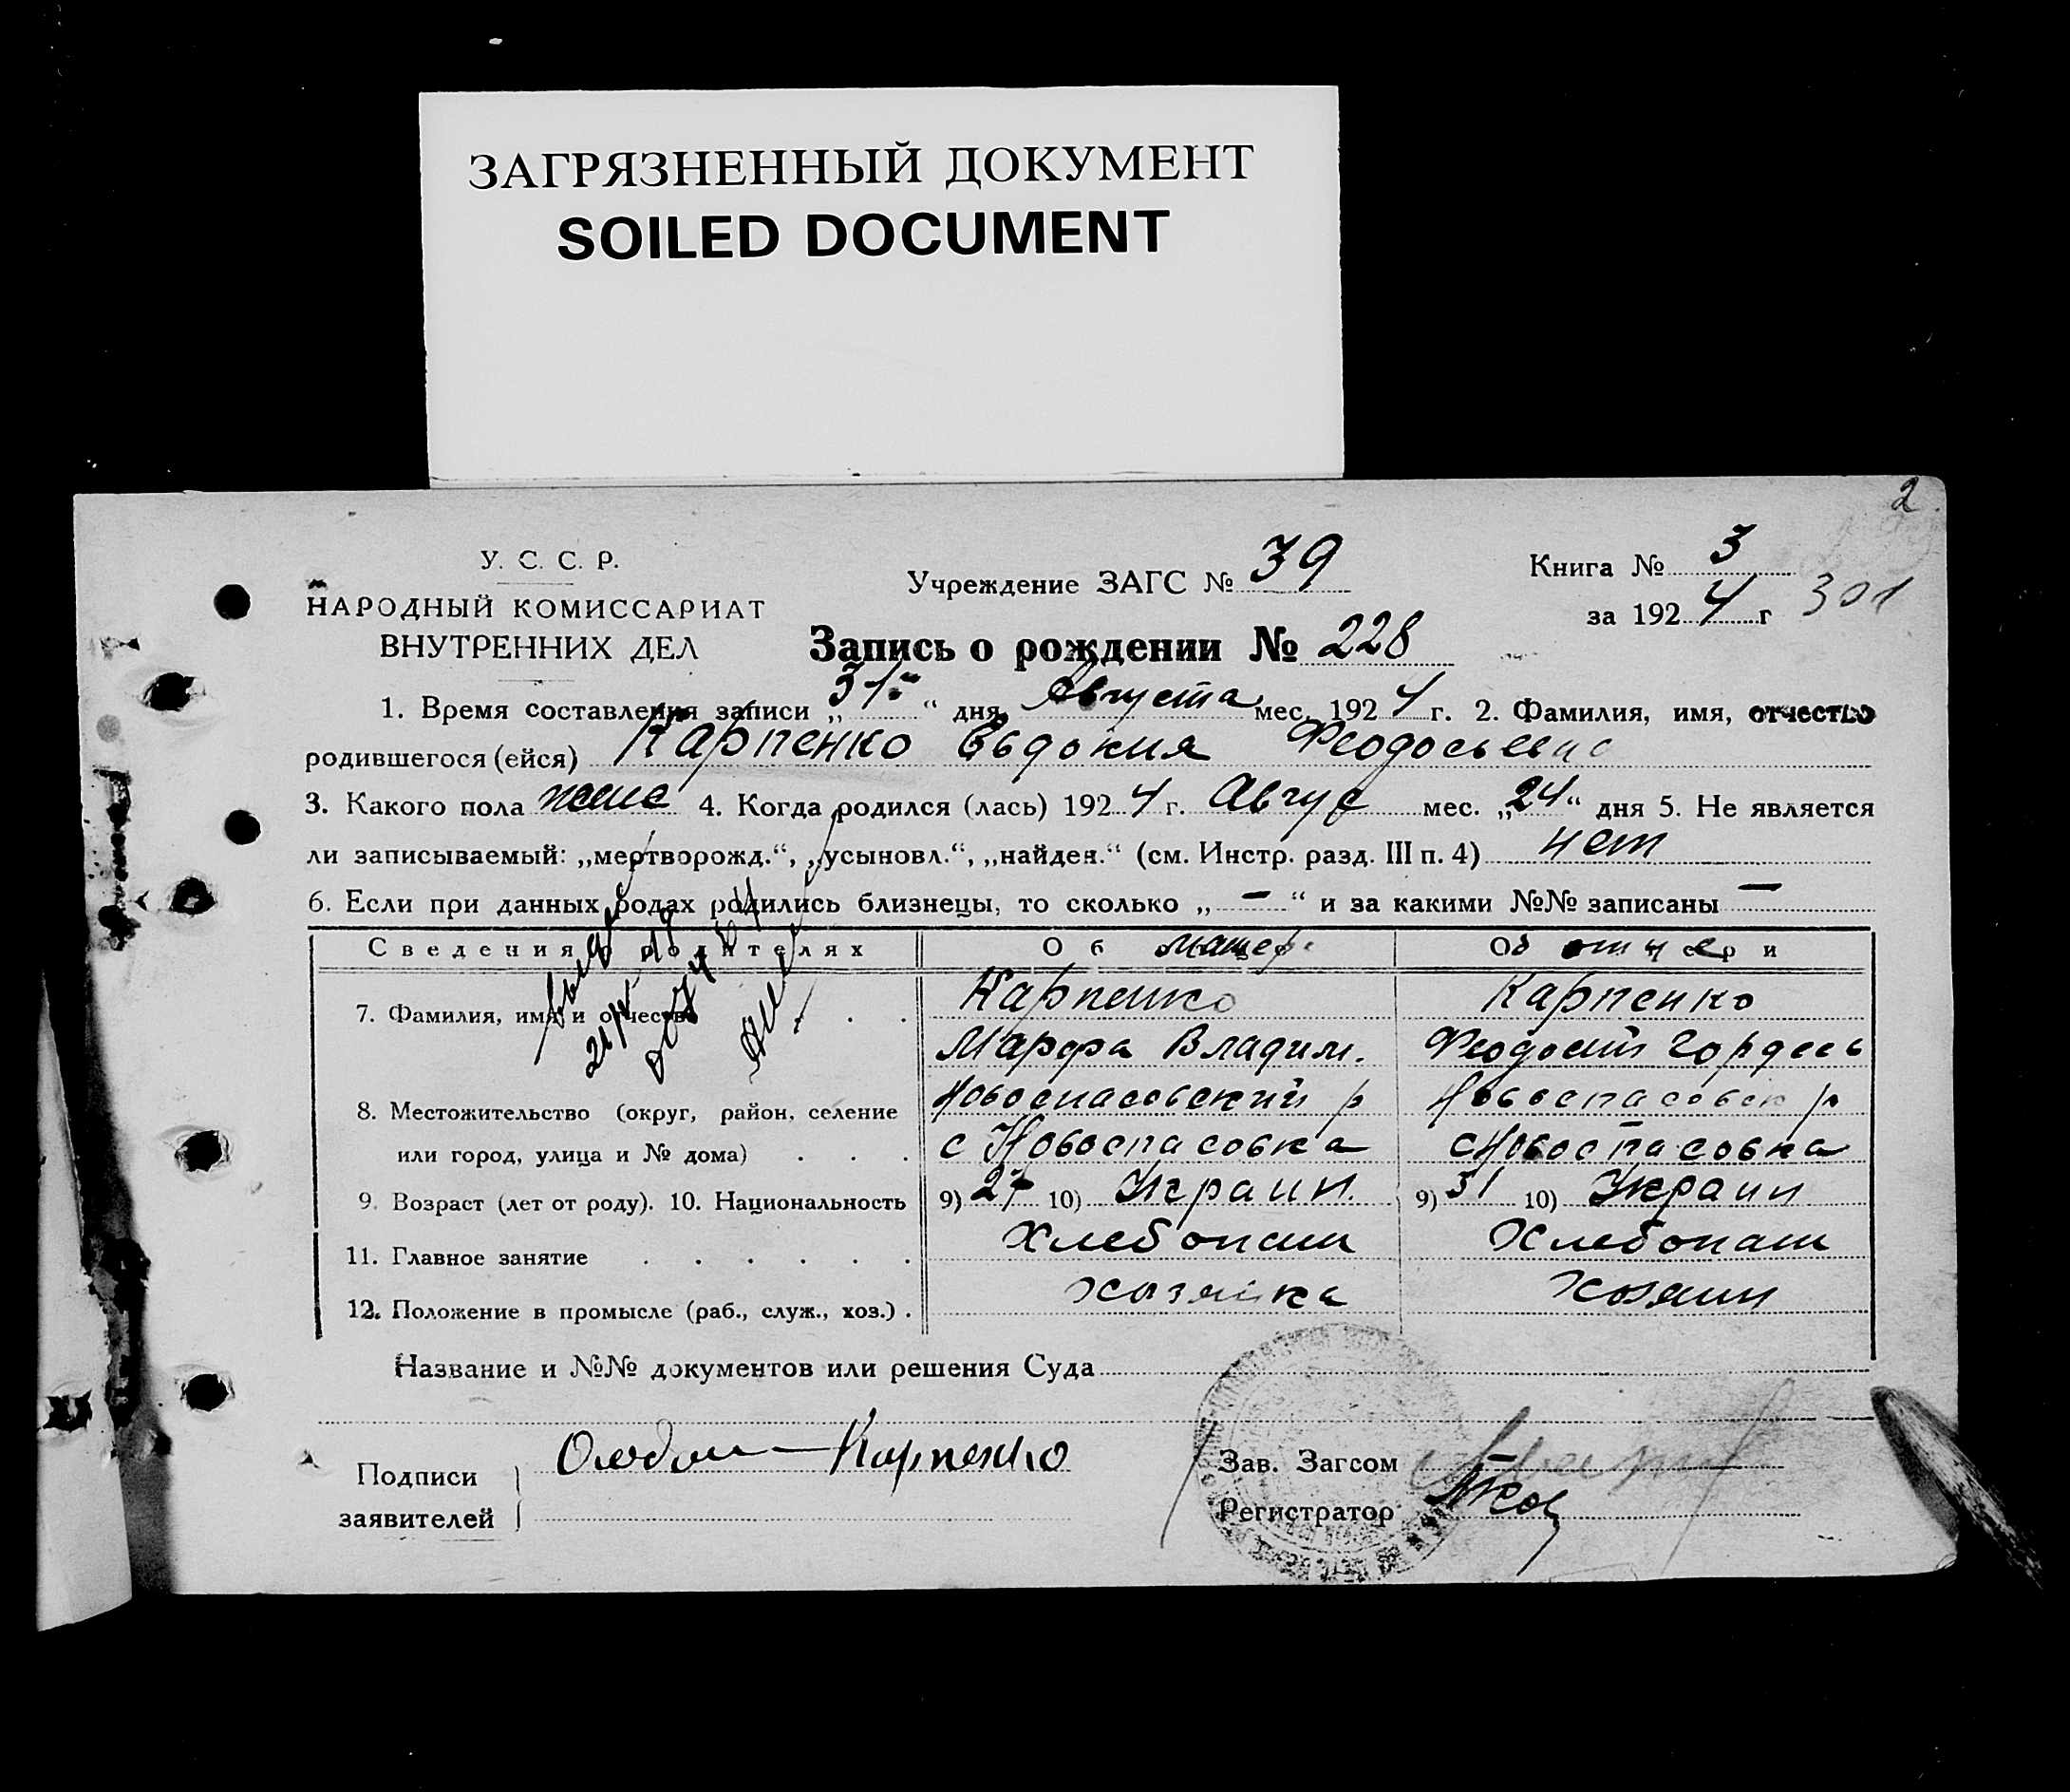 ЗАГРЯЗНЕННЫЙ ДОКУМЕНТ
SOILED DOCUMENT
2
У. С. С. Р.
НАРОДНЫЙ КОМИССАРИАТ
ВНУТРЕННИХ ДЕЛ
Учреждение ЗАГС № 39
Книга № 3
за 1924 г 301
Запись о рождении № 228
1. Время составления записи „31“ дня Августа мес. 1924 г. 2. Фамилия, имя, отчество
родившегося (ейся) Карпенко Евдокия Феодосьевна
3. Какого пола женс 4. Когда родился (лась) 1924 г. Авгус мес. „24“ дня 5. Не является
ли записываемый: „мертворожд.“, „усыновл.“, „найден.“ (см. Инстр. разд. III п. 4) нет
6. Если при данных родах родились близнецы, то сколько „ — “ и за какими №№ записаны —
Сведения о родителях Об матер Об отце
7. Фамилия, имя и отчество . . . Карпенко Карпенко
Марфа Владим. Феодосий Гордеев
8. Местожительство (округ, район, селение Новоспасовский р Новоспасовск р
или город, улица и № дома) . . . с Новоспасовка с Новоспасовка
9. Возраст (лет от роду). 10. Национальность 9) 27 10) Украин. 9) 31 10) Украин
11. Главное занятие . . . . . . Хлебопаш Хлебопаш
12. Положение в промысле (раб., служ., хоз.) . хозяйка хозяин
Название и №№ документов или решения Суда
Подписи
заявителей
Карпенко
Зав. Загсом
Регистратор